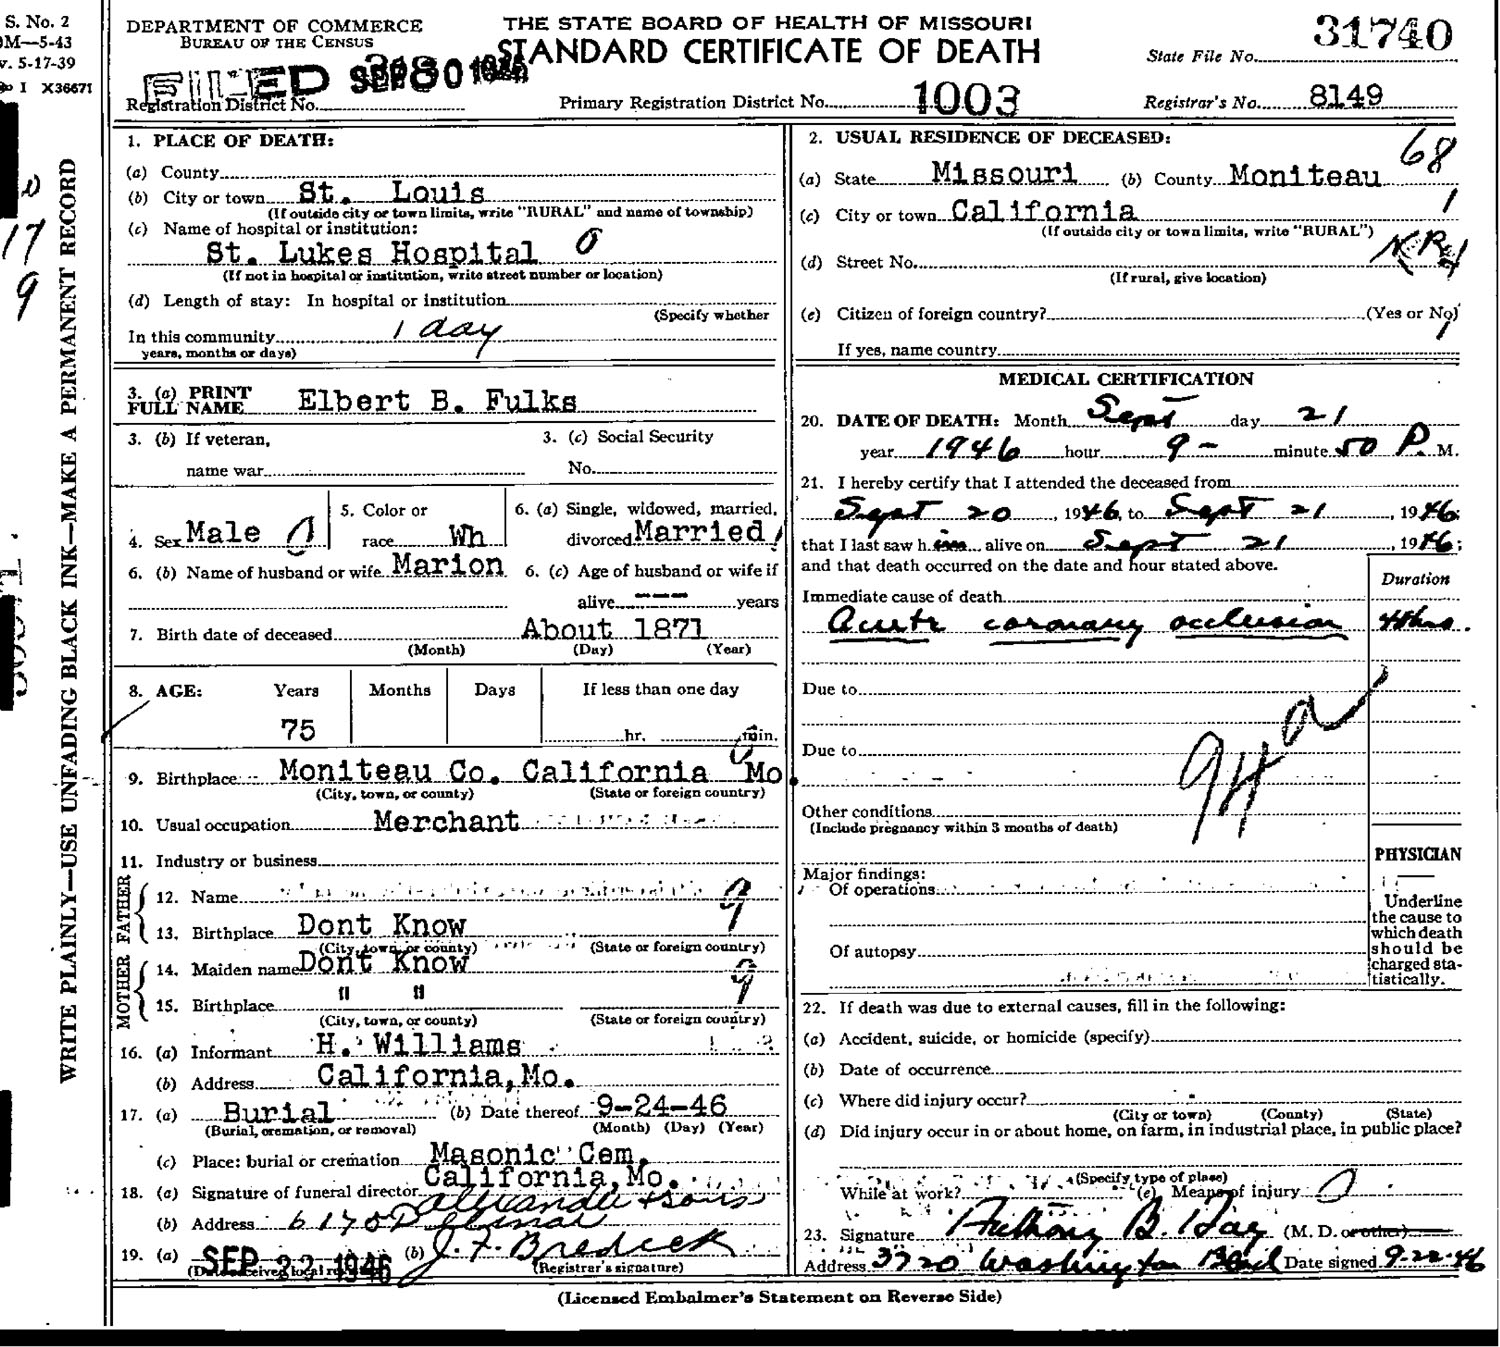 S. No. 2
M—5-43
v. 5-17-39
I X36671
WRITE PLAINLY—USE UNFADING BLACK INK—MAKE A PERMANENT RECORD
17
9
DEPARTMENT OF COMMERCE
BUREAU OF THE CENSUS
THE STATE BOARD OF HEALTH OF MISSOURI
STANDARD CERTIFICATE OF DEATH
State File No. 31740
FILED SEP 30 1946
Registration District No. 318
Primary Registration District No. 1003
Registrar's No. 8149
1. PLACE OF DEATH:
(a) County
(b) City or town St. Louis
(If outside city or town limits, write "RURAL" and name of township)
(c) Name of hospital or institution:
St. Lukes Hospital 0
(If not in hospital or institution, write street number or location)
(d) Length of stay: In hospital or institution
(Specify whether
In this community 1 day
years, months or days)
2. USUAL RESIDENCE OF DECEASED: 68
(a) State Missouri (b) County Moniteau
(c) City or town California 1
(If outside city or town limits, write "RURAL")
(d) Street No.
(If rural, give location)
(e) Citizen of foreign country? (Yes or No)
If yes, name country
3. (a) PRINT
FULL NAME Elbert B. Fulks
3. (b) If veteran,
name war
3. (c) Social Security
No.
4. Sex Male 0
5. Color or
race Wh
6. (a) Single, widowed, married,
divorced Married 1
6. (b) Name of husband or wife Marion
6. (c) Age of husband or wife if
alive --- years
7. Birth date of deceased About 1871
(Month) (Day) (Year)
8. AGE: Years Months Days If less than one day
75
hr. min.
9. Birthplace Moniteau Co. California Mo.
(City, town, or county) (State or foreign country)
10. Usual occupation Merchant
11. Industry or business
FATHER
12. Name 9
13. Birthplace Dont Know
(City, town, or county) (State or foreign country)
MOTHER
14. Maiden name Dont Know 9
15. Birthplace " "
(City, town, or county) (State or foreign country)
16. (a) Informant H. Williams
(b) Address California, Mo.
17. (a) Burial (b) Date thereof 9-24-46
(Burial, cremation, or removal) (Month) (Day) (Year)
(c) Place: burial or cremation Masonic Cem.
California, Mo.
18. (a) Signature of funeral director Alexander & Sons
(b) Address 6175 Delmar
19. (a) SEP 23 1946 (b) J. F. Bredeck
(Date received local registrar) (Registrar's signature)
MEDICAL CERTIFICATION
20. DATE OF DEATH: Month Sept day 21
year 1946 hour 9 - minute 50 P. M.
21. I hereby certify that I attended the deceased from
Sept 20, 1946, to Sept 21, 1946;
that I last saw him alive on Sept 21, 1946;
and that death occurred on the date and hour stated above.
Duration
Immediate cause of death
Acute coronary occlusion 48hrs.
Due to
94a
Due to
Other conditions
(Include pregnancy within 3 months of death)
Major findings:
Of operations
Of autopsy
PHYSICIAN
Underline
the cause to
which death
should be
charged sta-
tistically.
22. If death was due to external causes, fill in the following:
(a) Accident, suicide, or homicide (specify)
(b) Date of occurrence
(c) Where did injury occur?
(City or town) (County) (State)
(d) Did injury occur in or about home, on farm, in industrial place, in public place?
(Specify type of place)
While at work? (e) Means of injury 0
23. Signature Anthony B. Day (M. D. or other)
Address 3720 Washington Blvd Date signed 9-22-46
(Licensed Embalmer's Statement on Reverse Side)